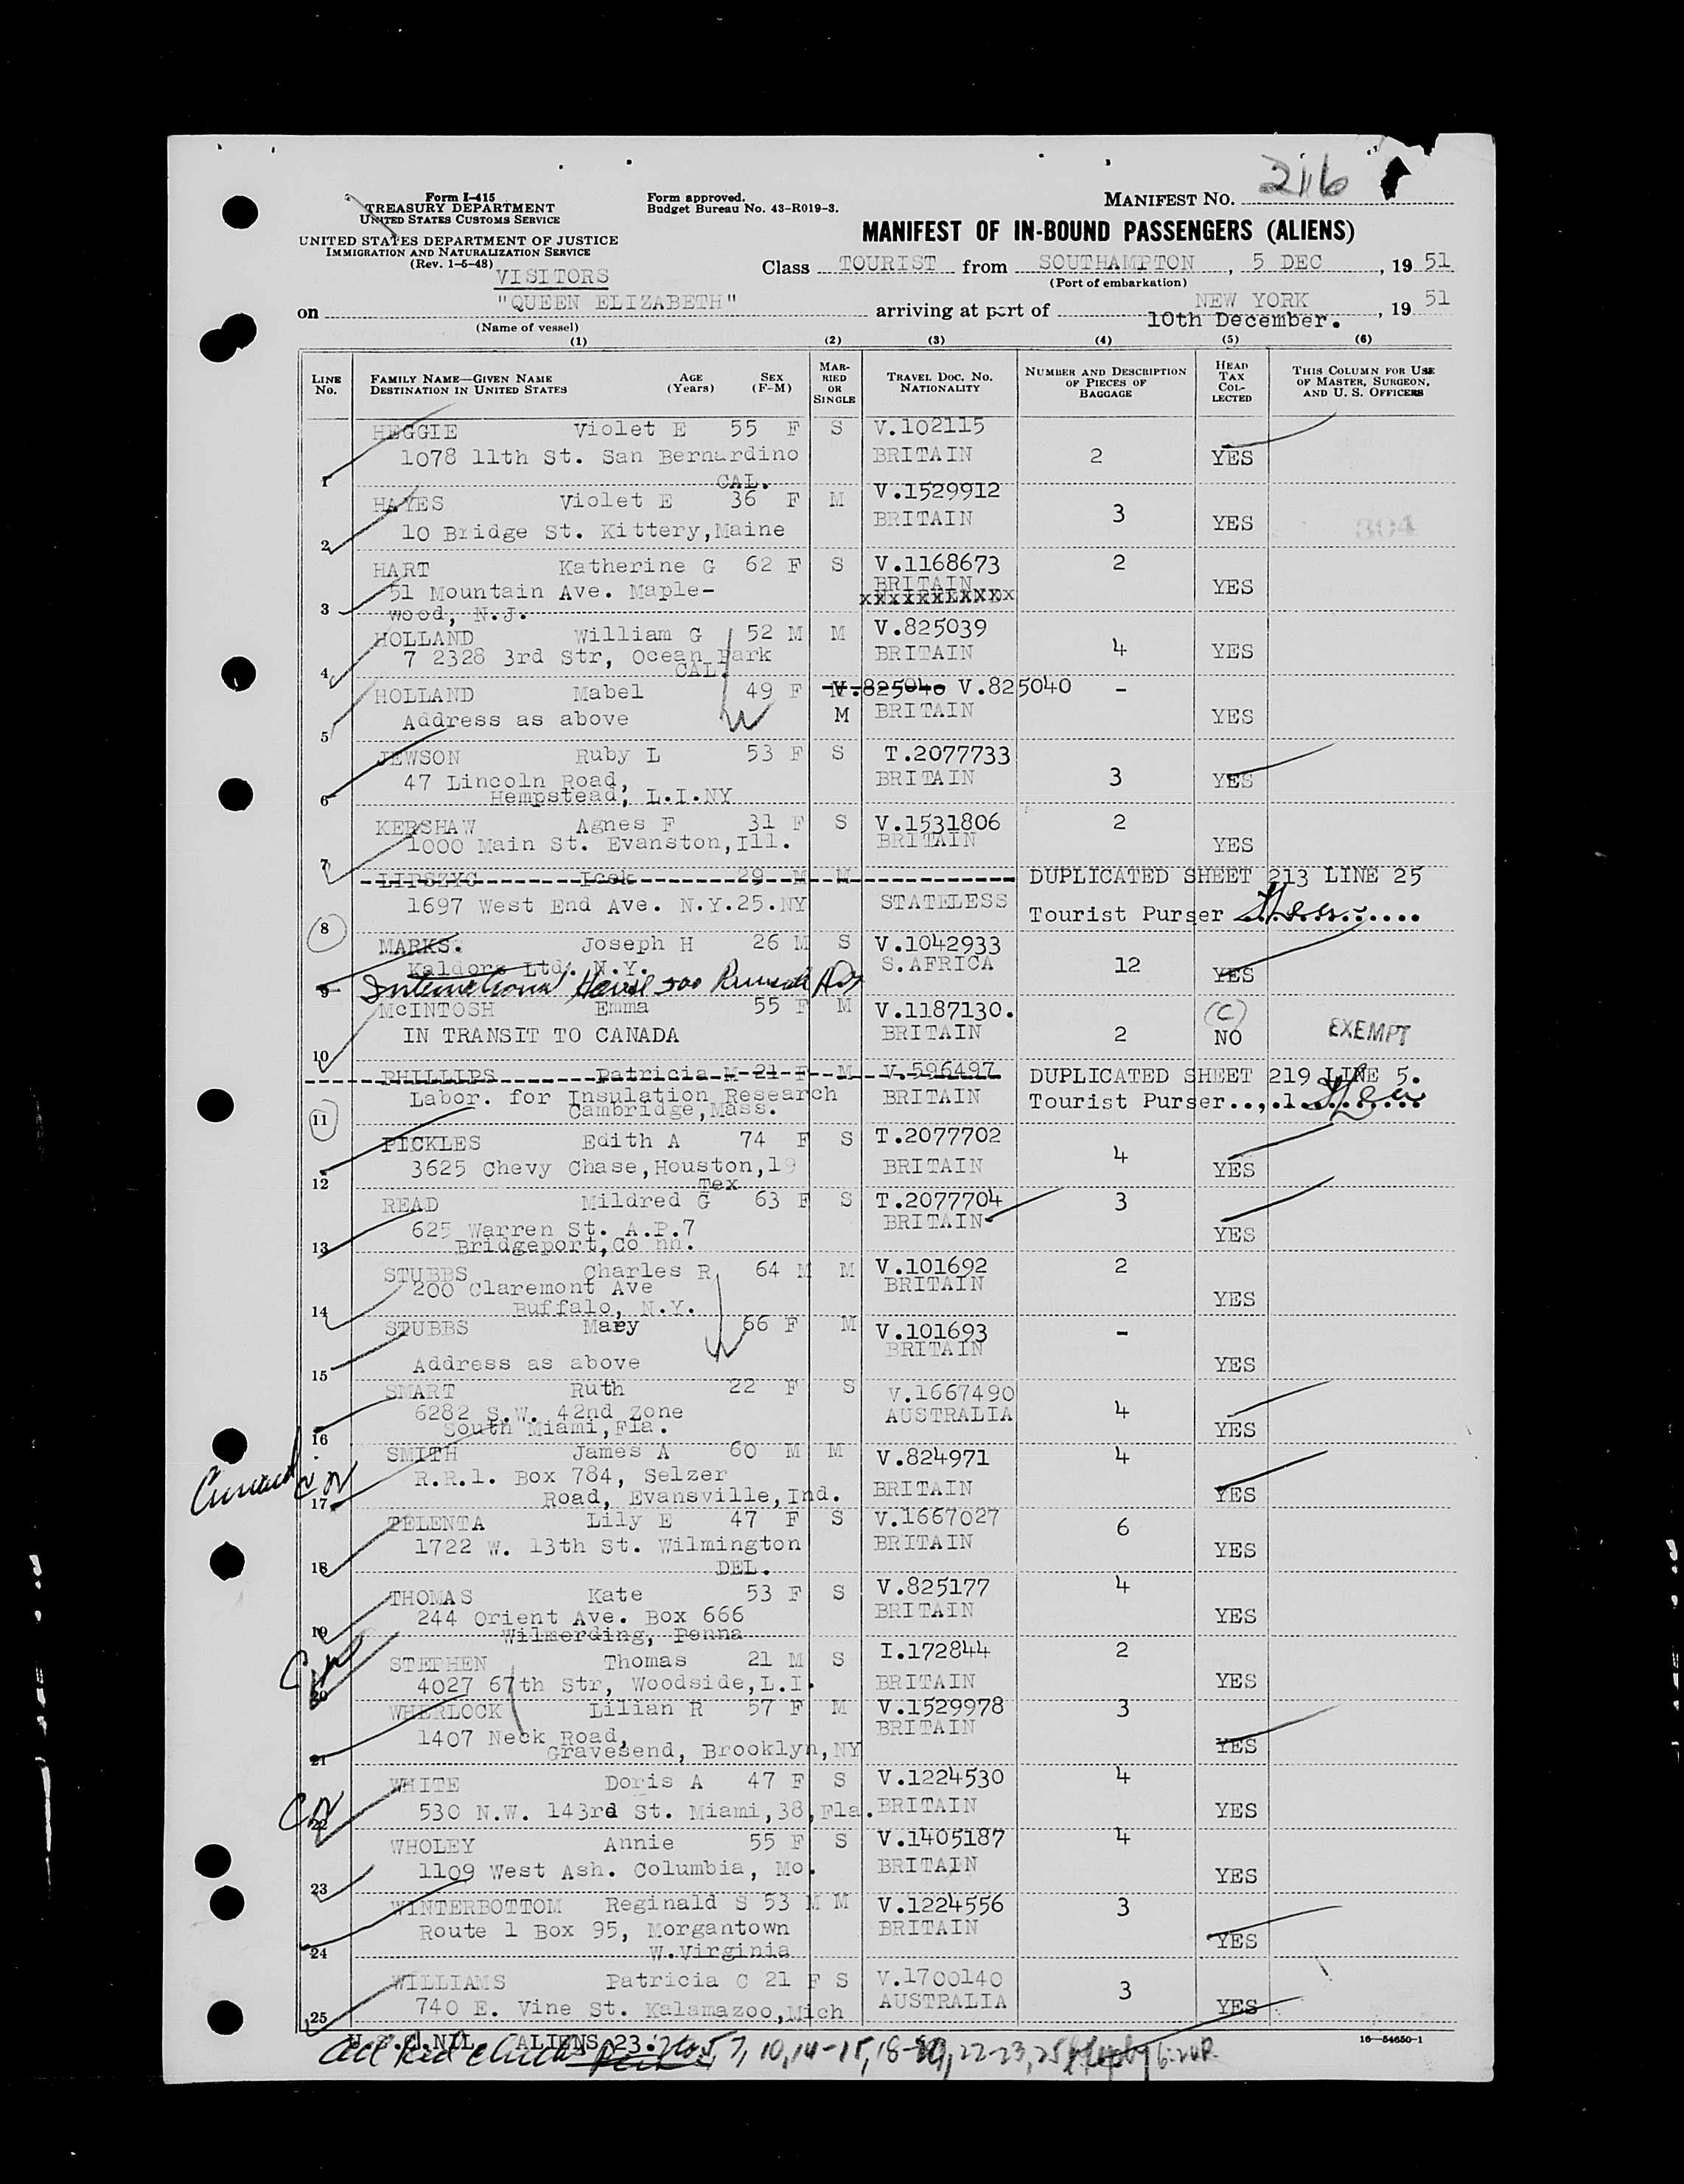 216
Form I-415
TREASURY DEPARTMENT
UNITED STATES CUSTOMS SERVICE
Form approved.
Budget Bureau No. 43-R019-3.
MANIFEST NO.
UNITED STATES DEPARTMENT OF JUSTICE
IMMIGRATION AND NATURALIZATION SERVICE
(Rev. 1-5-48)
MANIFEST OF IN-BOUND PASSENGERS (ALIENS)
VISITORS
Class TOURIST from SOUTHAMPTON, 5 DEC, 19 51
(Port of embarkation)
on "QUEEN ELIZABETH" arriving at port of NEW YORK, 19 51
(Name of vessel) 10th December.
(1) (2) (3) (4) (5) (6)
LINE No. FAMILY NAME—GIVEN NAME DESTINATION IN UNITED STATES AGE (Years) SEX (F-M) MARRIED OR SINGLE TRAVEL DOC. NO. NATIONALITY NUMBER AND DESCRIPTION OF PIECES OF BAGGAGE HEAD TAX COLLECTED THIS COLUMN FOR USE OF MASTER, SURGEON, AND U. S. OFFICERS
HEGGIE Violet E 55 F S V.102115
1078 11th St. San Bernardino BRITAIN 2 YES
1 CAL.
HAYES Violet E 36 F M V.1529912
10 Bridge St. Kittery,Maine BRITAIN 3 YES 304
2
HART Katherine G 62 F S V.1168673 2
51 Mountain Ave. Maple- BRITAIN YES
3 wood, N.J.
HOLLAND William G 52 M M V.825039
7 2328 3rd Str, Ocean Park BRITAIN 4 YES
4 CAL.
HOLLAND Mabel 49 F V.825040 V.825040 -
Address as above M BRITAIN YES
5
JEWSON Ruby L 53 F S T.2077733
47 Lincoln Road, BRITAIN 3 YES
6 Hempstead, L.I.NY
KERSHAW Agnes F 31 F S V.1531806 2
1000 Main St. Evanston,Ill. BRITAIN YES
7
LIPSZYC Icek 29 M M DUPLICATED SHEET 213 LINE 25
1697 West End Ave. N.Y.25.NY STATELESS Tourist Purser
8
MARKS. Joseph H 26 M S V.1042933
Kaldors Ltd. N.Y. S.AFRICA 12 YES
9 International House 500
McINTOSH Emma 55 F M V.1187130. (C)
IN TRANSIT TO CANADA BRITAIN 2 NO EXEMPT
10
PHILLIPS Patricia M 21 F M V.596497 DUPLICATED SHEET 219 LINE 5.
Labor. for Insulation Research BRITAIN Tourist Purser
11 Cambridge,Mass.
PICKLES Edith A 74 F S T.2077702
3625 Chevy Chase,Houston,19 BRITAIN 4 YES
12 Tex
READ Mildred G 63 F S T.2077704 3
625 Warren St. A.P.7 BRITAIN YES
13 Bridgeport,Co nn.
STUBBS Charles R 64 M M V.101692 2
200 Claremont Ave BRITAIN YES
14 Buffalo, N.Y.
STUBBS Mary 66 F M V.101693 -
Address as above BRITAIN YES
15
SMART Ruth 22 F S V.1667490
6282 S.W. 42nd Zone AUSTRALIA 4 YES
16 South Miami,Fla.
SMITH James A 60 M M V.824971 4
R.R.1. Box 784, Selzer BRITAIN YES
17 Road, Evansville,Ind.
TELENTA Lily E 47 F S V.1667027 6
1722 W. 13th St. Wilmington BRITAIN YES
18 DEL.
THOMAS Kate 53 F S V.825177 4
244 Orient Ave. Box 666 BRITAIN YES
19 Wilmerding, Penna
STEPHEN Thomas 21 M S I.172844 2
4027 67th Str, Woodside,L.I. BRITAIN YES
20
WHERLOCK Lilian R 57 F M V.1529978 3
1407 Neck Road, BRITAIN YES
21 Gravesend, Brooklyn,NY
WHITE Doris A 47 F S V.1224530 4
530 N.W. 143rd St. Miami,38,Fla. BRITAIN YES
22
WHOLEY Annie 55 F S V.1405187 4
1109 West Ash. Columbia, Mo. BRITAIN YES
23
WINTERBOTTOM Reginald S 53 M M V.1224556 3
Route 1 Box 95, Morgantown BRITAIN YES
24 W.Virginia
WILLIAMS Patricia C 21 F S V.1700140 3
740 E. Vine St. Kalamazoo,Mich AUSTRALIA YES
25
NIL. ALIENS 23. 16-54650-1
7, 10, 14-15, 18- 22-23, 25